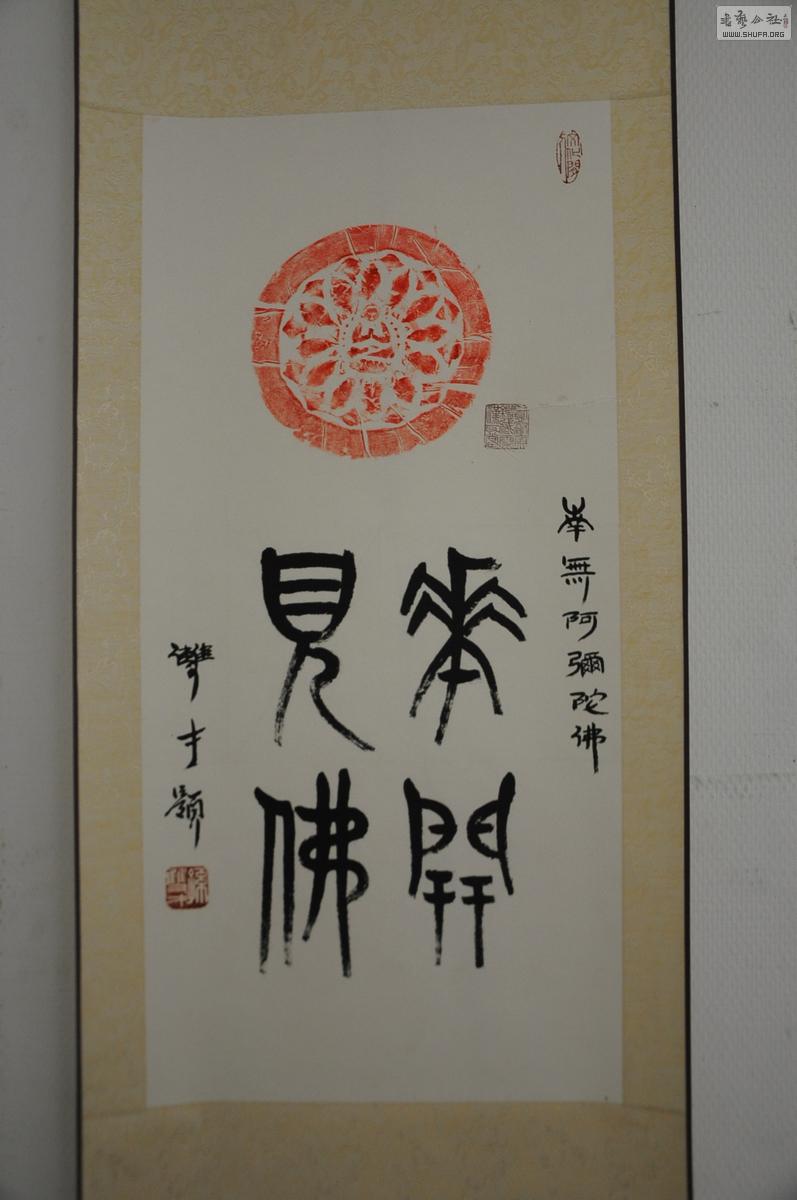 南無阿彌陀佛
華開
見佛
雙才題
書藝公社
WWW.SHUFA.ORG